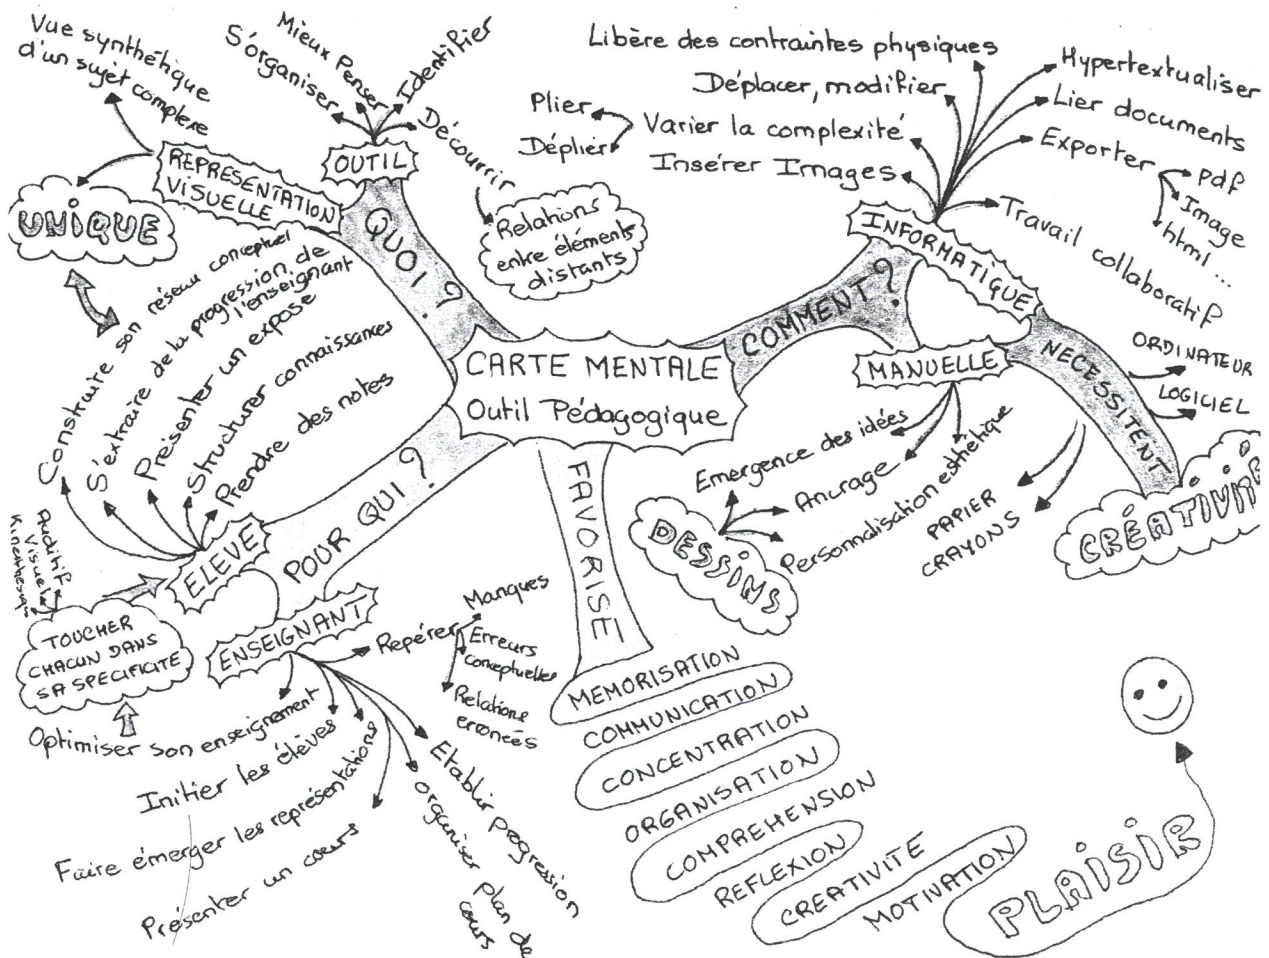 CARTE MENTALE
Outil Pédagogique
QUOI ?
REPRESENTATION
VISUELLE
Vue synthétique
d'un sujet complexe
UNIQUE
OUTIL
S'organiser
Mieux Penser
Identifier
Découvrir
Relations
entre éléments
distants
COMMENT ?
INFORMATIQUE
Libère des contraintes physiques
Déplacer, modifier
Varier la complexité
Plier
Déplier
Insérer Images
Hypertextualiser
Lier documents
Exporter
pdf
Image
html ...
Travail collaboratif
MANUELLE
Emergence des idées
Ancrage
Personnalisation esthétique
DESSINS
NECESSITENT
ORDINATEUR
LOGICIEL
PAPIER
CRAYONS
CRÉATIVITÉ
POUR QUI ?
ELEVE
Construire son réseau conceptuel
S'extraire de la progression de
l'enseignant
Présenter un exposé
Structurer connaissances
Prendre des notes
Auditif
Visuel
Kinesthésique
TOUCHER
CHACUN DANS
SA SPECIFICITE
ENSEIGNANT
Optimiser son enseignement
Initier les élèves
Faire émerger les représentations
Présenter un cours
organiser plan de
cours
Etablir progression
Repérer
Manques
Erreurs
conceptuelles
Relations
erronées
FAVORISE
MEMORISATION
COMMUNICATION
CONCENTRATION
ORGANISATION
COMPREHENSION
REFLEXION
CREATIVITE
MOTIVATION
PLAISIR